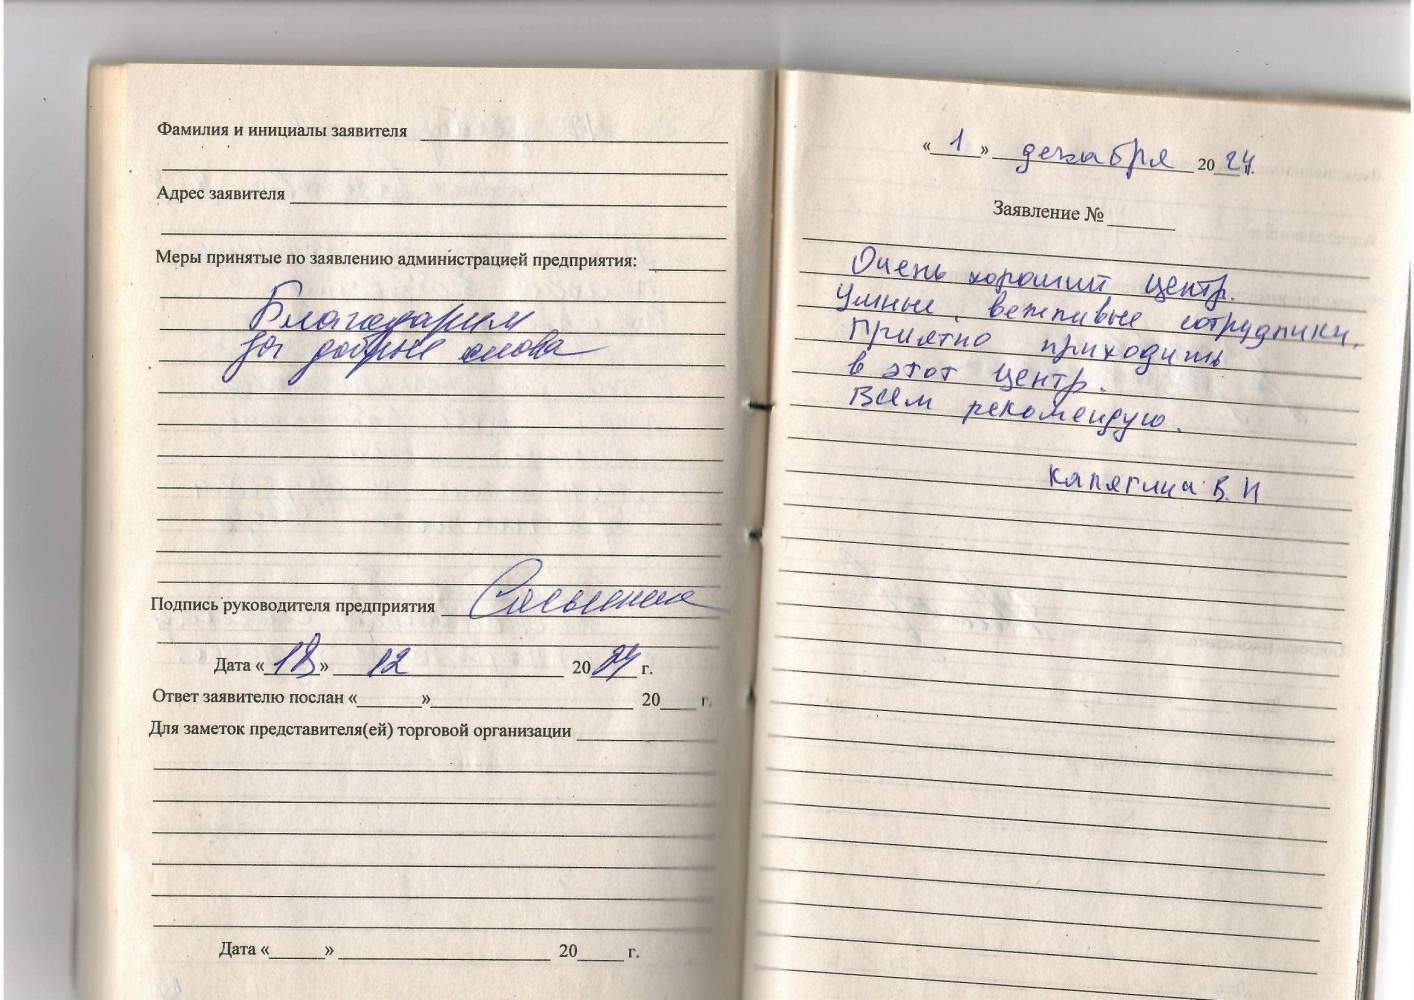 Фамилия и инициалы заявителя
Адрес заявителя
Меры принятые по заявлению администрацией предприятия:
Благодарим
за добрые слова
Подпись руководителя предприятия
Дата «18» 12 2024 г.
Ответ заявителю послан «    » 20    г.
Для заметок представителя(ей) торговой организации
Дата «    » 20    г.
«1» декабря 2024 г.
Заявление №
Очень хороший центр.
Умные, вежливые сотрудники.
Приятно приходить
в этот центр.
Всем рекомендую.
Капягина В. И